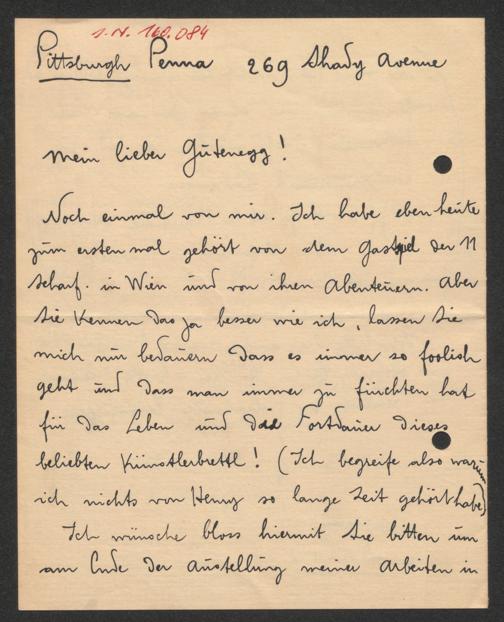 I.N. 160.084
Pittsburgh Penna 269 Shady Avenue
Mein lieber Gutenegg!
Noch einmal von mir. Ich habe eben heute
zum ersten mal gehört von dem Gastspiel der 11
Scharf. in Wien und von ihren Abenteuern. Aber
Sie kennen das ja besser wie ich, lassen Sie
mich nur bedauern dass es immer so foolish
geht und dass man immer zu fürchten hat
für das Leben und die Fortdauer dieses
beliebten Künstlerbrettl! (Ich begreife also warum
ich nichts von Henry so lange Zeit gehört habe)
Ich wünsche bloss hiermit Sie bitten um
am Ende der Austellung meiner Arbeiten in